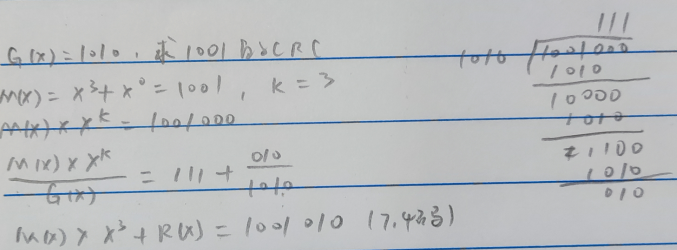 G(x)=1010，求1001的CRC
M(x)=x³+x⁰=1001，k=3
M(x)×xᵏ=1001000
M(x)×xᵏ/G(x)=111+010/1010
M(x)×x³+R(x)=1001010（7,4码）
111
1010 1001000
1010
10000
1010
1100
1010
010